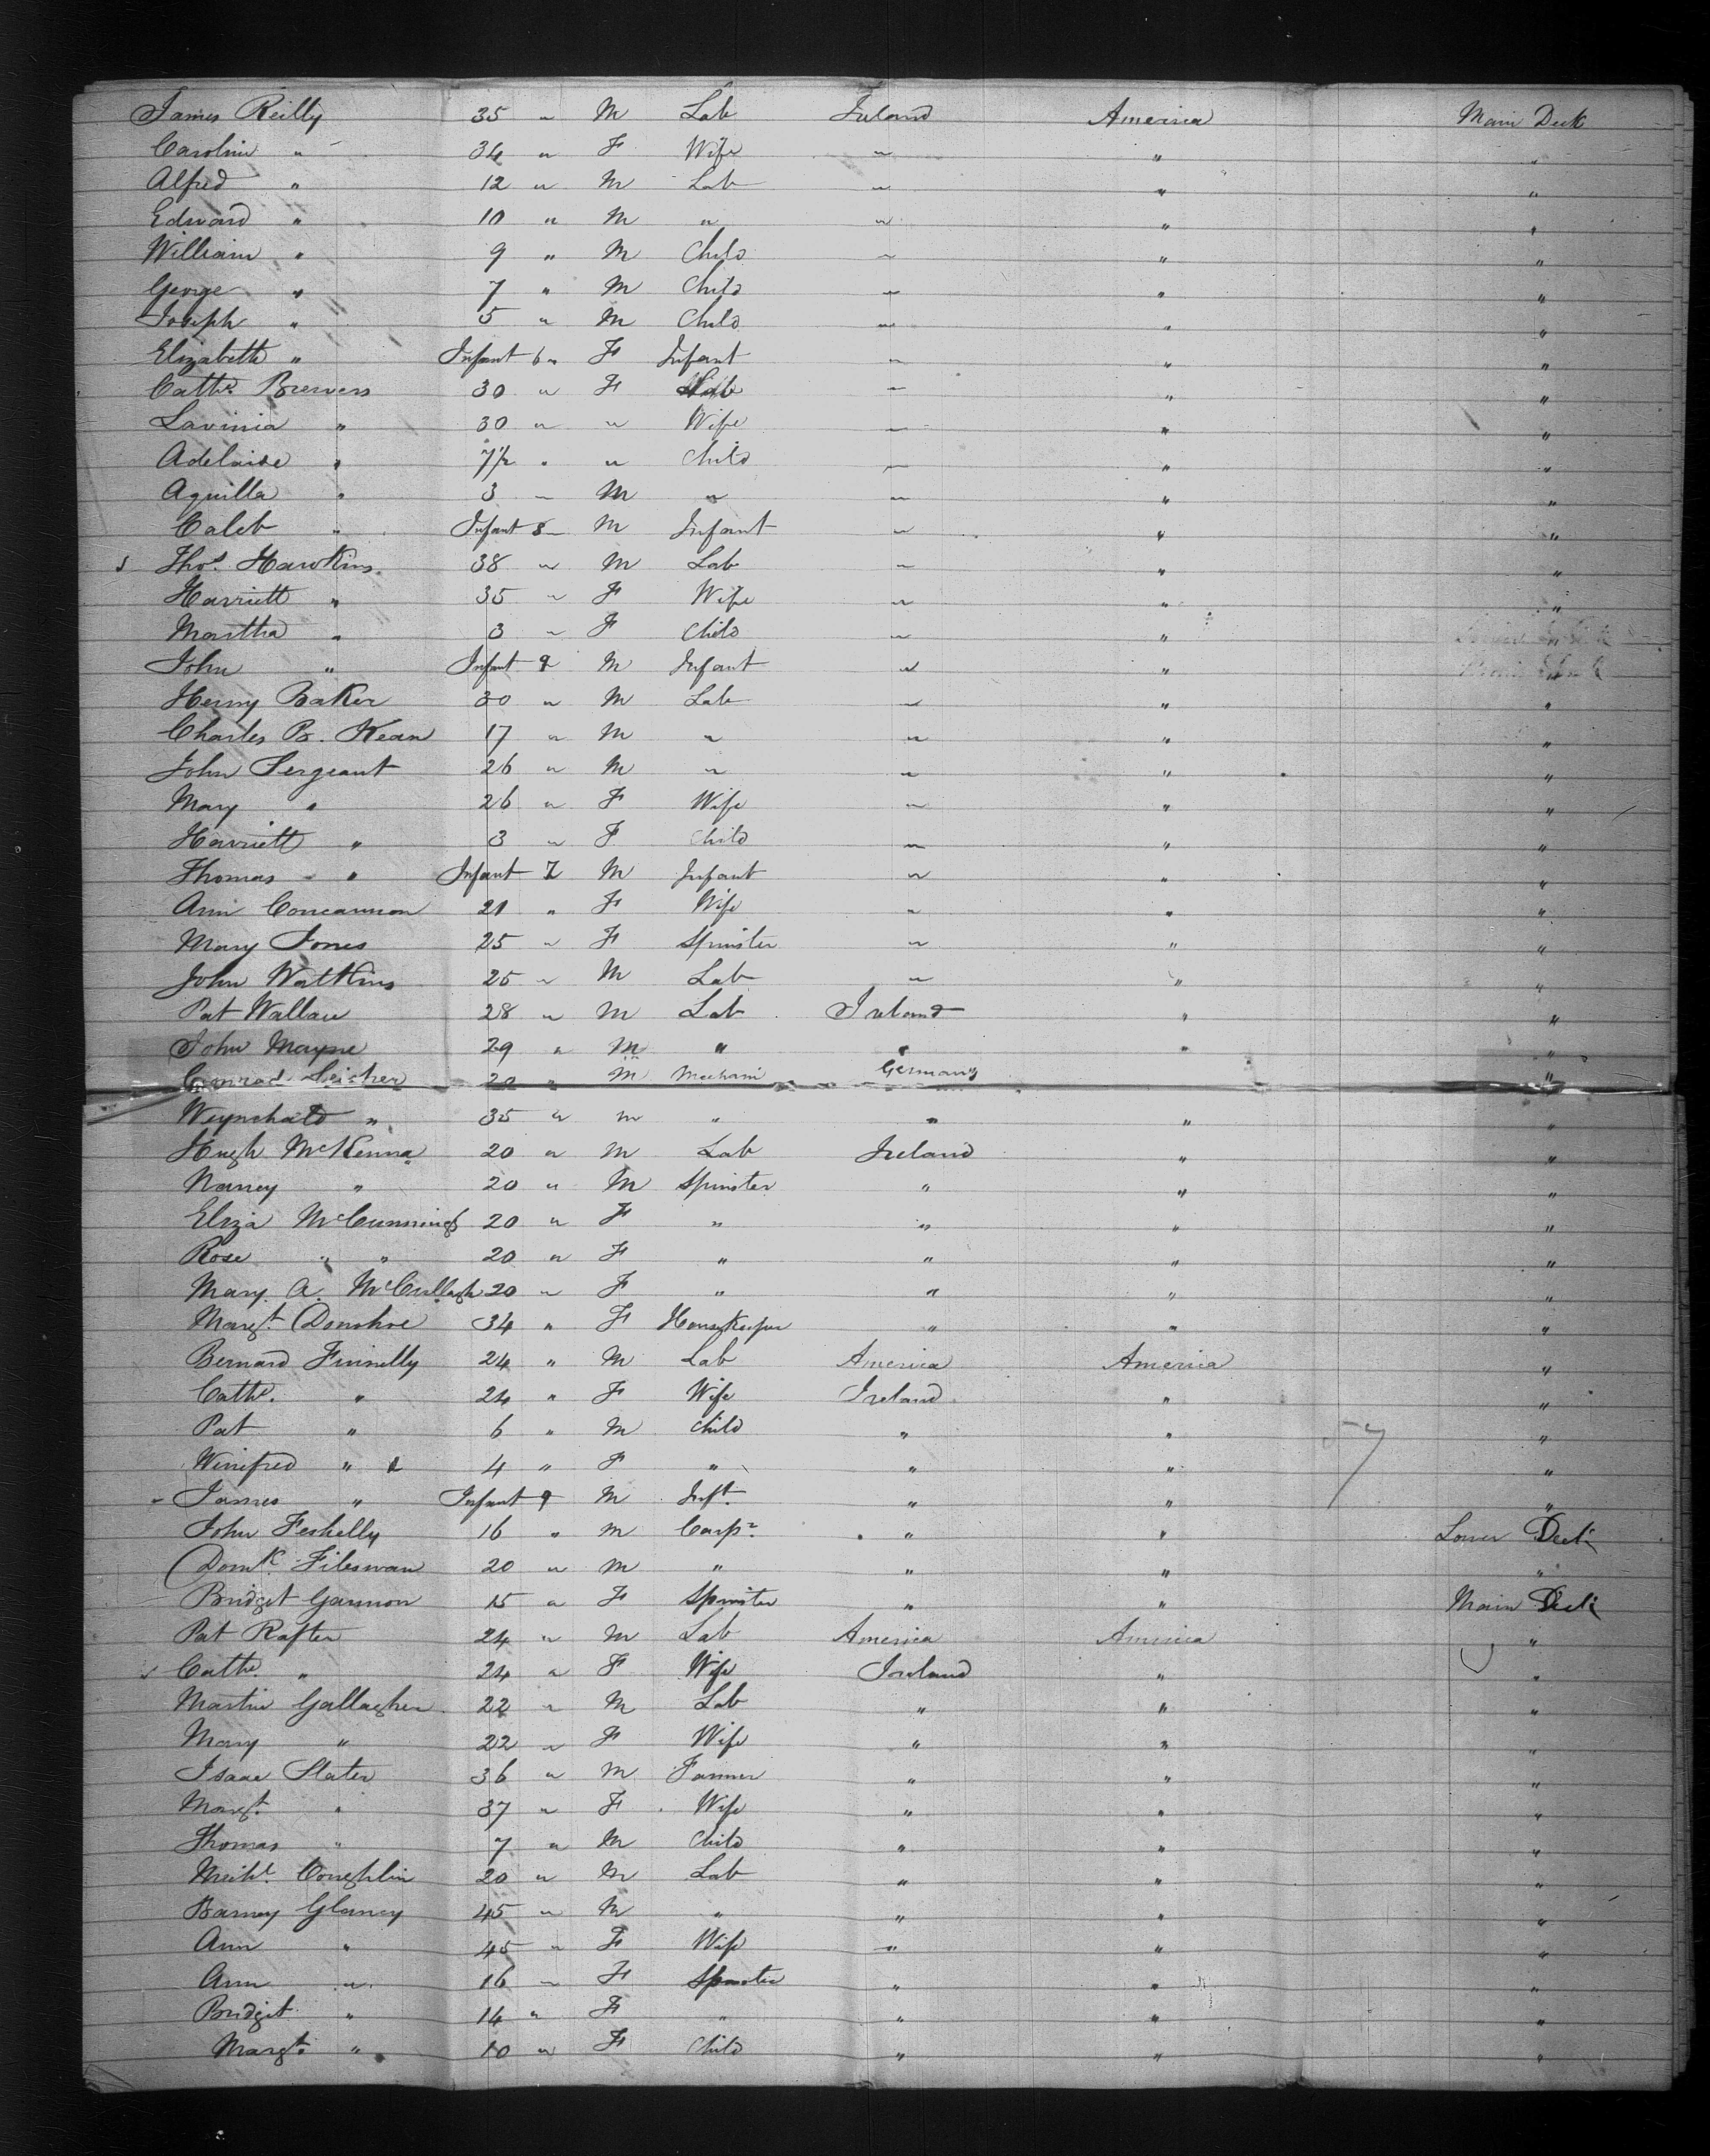 James Reilly 35 " M Lab Ireland America Main Deck
Caroline " 34 " F Wife " " "
Alfred " 12 " M Lab " " "
Edward " 10 " M " " " "
William " 9 " M Child " " "
George " 7 " M Child " " "
Joseph " 5 " M Child " " "
Elizabeth " Infant 6 " F Infant " " "
Cathe. Brewers 30 " F Lab " " "
Lavinia " 30 " " Wife " " "
Adelaide " 7½ " " Child " " "
Aquilla " 3 " M " " " "
Caleb " Infant 8 " M Infant " " "
Thos. Hawkins 38 " M Lab " " "
Harriett " 35 " F Wife " " "
Martha " 3 " F Child " " "
John " Infant 9 M Infant " " "
Henry Baker 30 " M Lab " " "
Charles B. Kean 17 " M " " " "
John Sergeant 26 " M " " " "
Mary " 26 " F Wife " " "
Harriett " 3 " F Child " " "
Thomas " Infant 7 M Infant " " "
Ann Concannon 21 " F Wife " " "
Mary Jones 25 " F Spinster " " "
John Watkins 25 " M Lab " " "
Pat Wallace 28 " M Lab Ireland " "
John Mayne 29 " M " " " "
Conrad 20 " M Mechani Germany "
" 35 " M " " " "
Hugh McKenna 20 " M Lab Ireland " "
Nancy " 20 " M Spinster " " "
Eliza McCummings 20 " F " " " "
Rose " " 20 " F " " " "
Mary A. McCullagh 20 " F " " " "
Margt. Donohoe 34 " F Housekeeper " " "
Bernard Finnelly 24 " M Lab America America "
Cathe. " 24 " F Wife Ireland " "
Pat " 6 " M Child " " "
Winifred " 4 " F " " " "
James " Infant 9 M Inft. " " "
John Feshelly 16 " M Carpr. " " Lower Deck
Domk. 20 " M " " " "
Bridget Gannon 15 " F Spinster " " Main Deck
Pat Rafter 24 " M Lab America America "
Cathe. " 24 " F Wife Ireland " "
Martin Gallagher 22 " M Lab " " "
Mary " 22 " F Wife " " "
Isaac Slater 36 " M Farmer " " "
Margt. " 37 " F Wife " " "
Thomas " 7 " M Child " " "
Michl. Coughlin 20 " M Lab " " "
Barney Glancy 45 " M " " " "
Ann " 45 " F Wife " " "
Ann " 16 " F Spinster " " "
Bridget " 14 " F " " " "
Margt. " 10 " F Child " " "